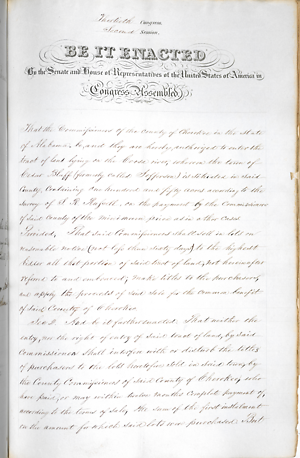 Thirtieth Congress.
Second Session.
BE IT ENACTED
By the Senate and House of Representatives of the United States of America in
Congress Assembled
That the Commissioners of the County of Cherokee in the State
of Alabama be, and they are hereby, authorized to enter the
tract of land lying on the Coosa river, whereon the town of
Cedar Bluff (formerly called Jefferson) is situated in said
County, Containing One hundred and fifty acres according to the
Survey of on the payment by the Commissioners
of said County of the minimum price as in other Cases
Provided, That said Commissioners shall sell in lots on
reasonable notice (not less than sixty days) to the highest
bidder all that portion of said tract of land, not heretofore
and make titles to the purchasers,
and apply the proceeds of said sale for the common benefit
of said County of Cherokee
Sec 2. And be it further enacted, That neither the
entry, nor the right of entry of said tract of land, by said
Commissioners shall interfere with or disturb the titles
of purchasers to the lots heretofore sold in said town, by
the County Commissioners of said County of Cherokee, who
have paid, or may within twelve months complete payment of,
according to the terms of sale, the sum of the first instalment
in the amount for which said lots were purchased. But